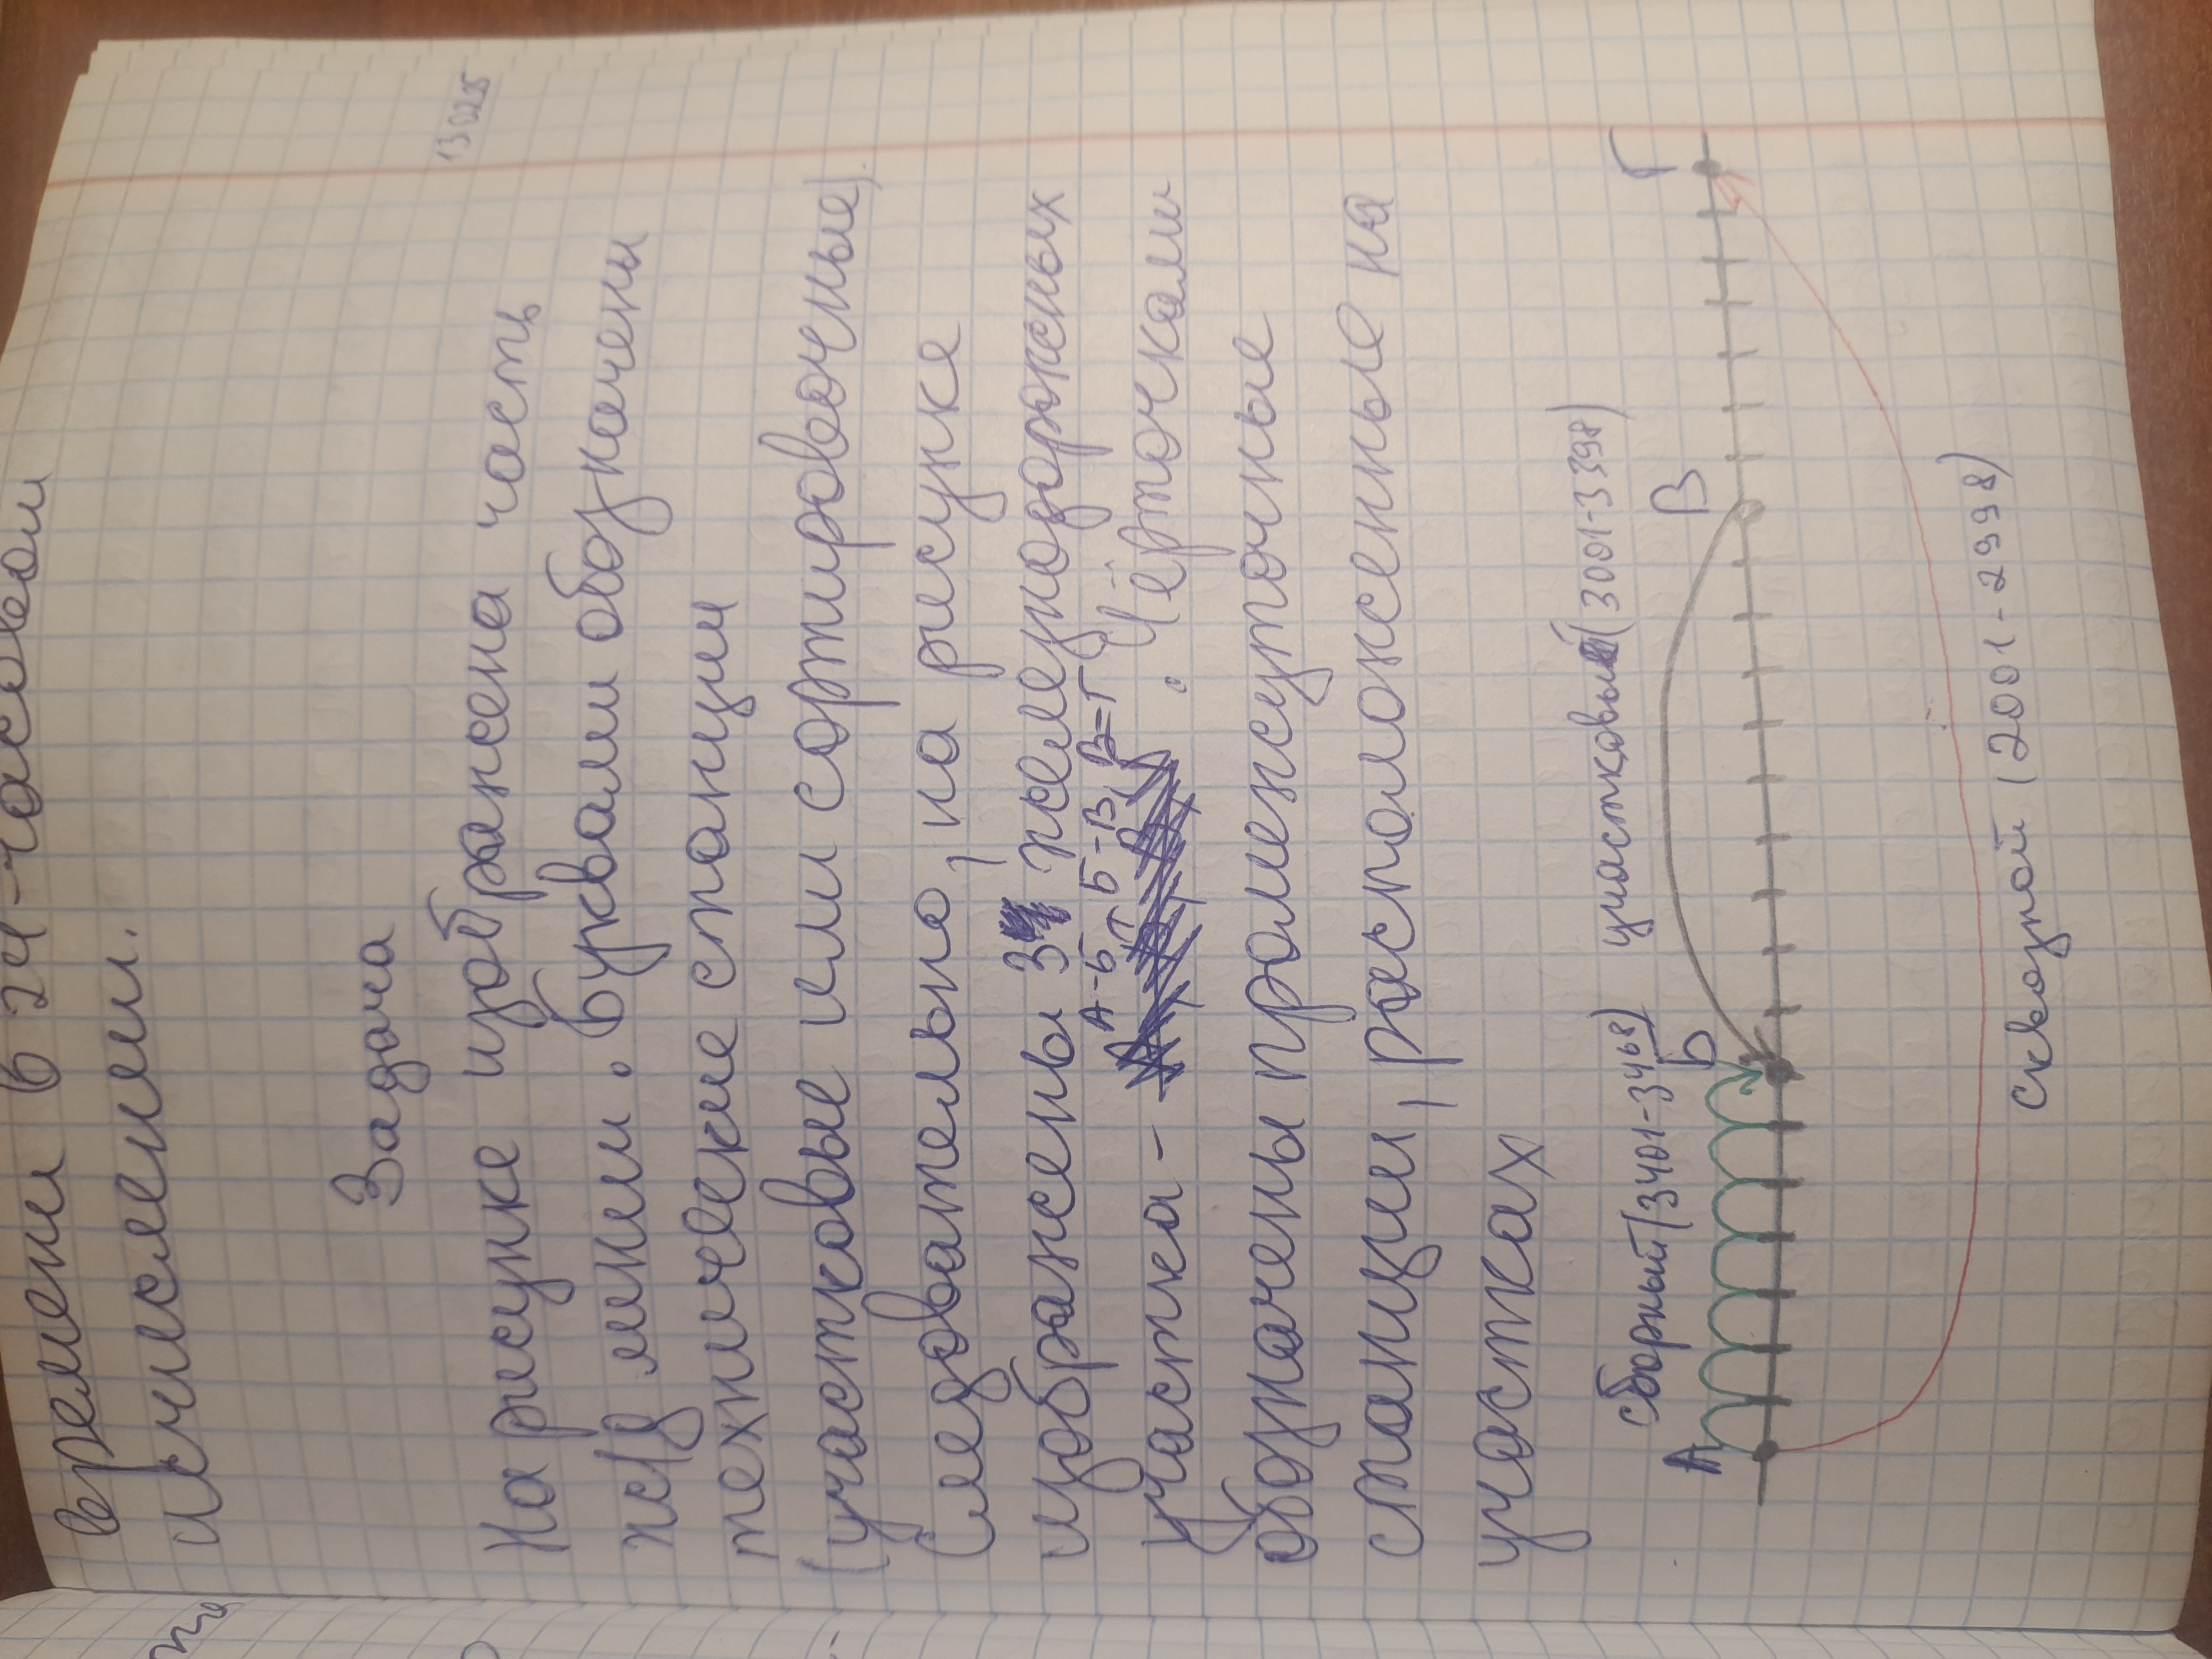 времени в 24-часовом
исчислении.
Задача
13 02 25
На рисунке изображена часть
ж/д линии. Буквами обозначены
технические станции
(участковые или сортировочные).
Следовательно, на рисунке
изображены 3 железнодорожных
А-Б, Б-В, В=Г
участка - . Чёрточками
обозначены промежуточные
станции, расположенные на
участках
сборный (3401-3468) участковый (3001-3398)
А Б В Г
сквозной (2001-2998)